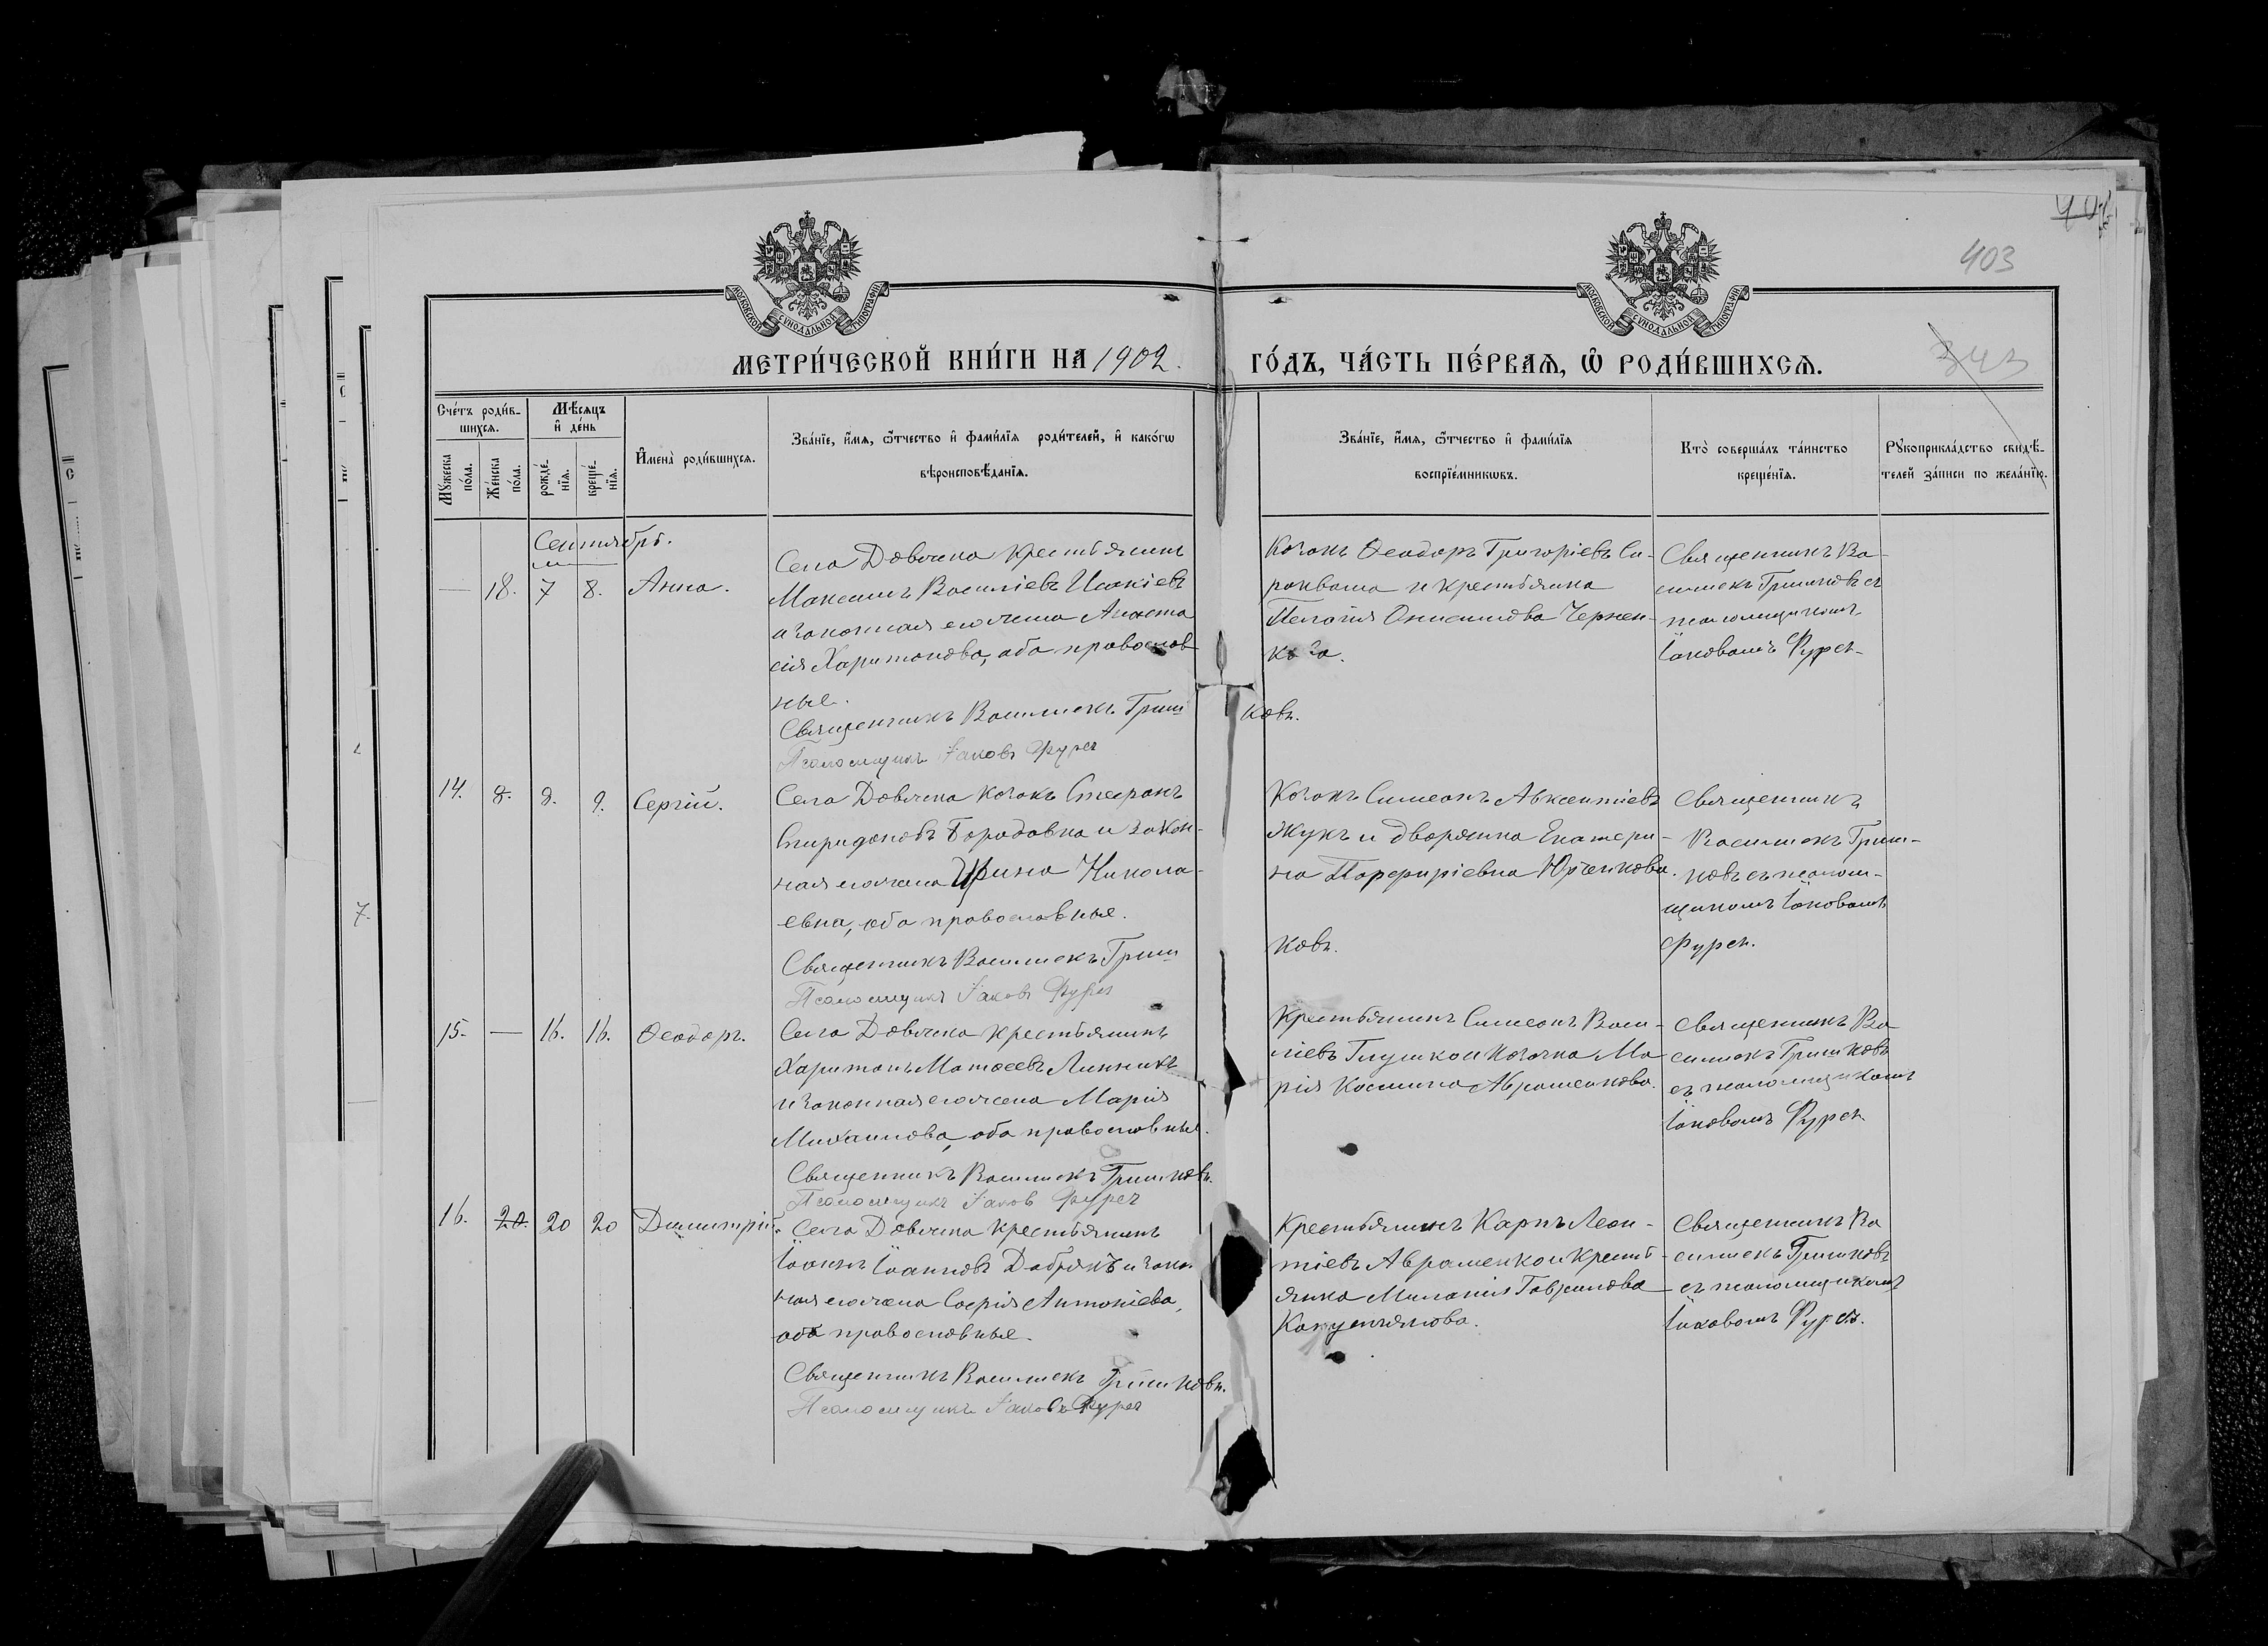 403
343
МОСКОВСКОЙ СУНОДАЛЬНОЙ ТИПОГРАФІИ
МОСКОВСКОЙ СУНОДАЛЬНОЙ ТИПОГРАФІИ
МЕТРИ́ЧЕСКОЙ КНИ́ГИ НА 1902.
ГО́ДЪ, ЧА́СТЬ ПЕ́РВАѦ, Ѿ РОДИ́ВШИХСѦ.
Сче́тъ роди́в-
шихсѧ.
Мѣ́сѧцъ
и҆ де́нь
Мꙋ́жеска
по́ла.
Же́нска
по́ла.
рожде́-
нїѧ.
креще́-
нїѧ.
И҆мена̀ роди́вшихсѧ.
Зва́нїе, и҆́мѧ, ѻ҆́тчество и҆ фами́лїѧ роди́телей, и҆ како́гѡ
вѣроисповѣ́данїѧ.
Зва́нїе, и҆́мѧ, ѻ҆́тчество и҆ фами́лїѧ
воспрїе́мникѡвъ.
Кто̀ соверша́лъ та́инство
креще́нїѧ.
Рꙋкоприкла́дство свидѣ́-
телей за́писи по жела́нїю.
Сентябрь.
— 18. 7 8. Анна.
Села Довжика крестьянинъ
Максимъ Василіевъ Исакіевъ
и законная его жена Анаста
сія Харитонова, оба православ
ные.
Священникъ Василискъ Гриш
ковъ.
Псаломщикъ Іаковъ Фурсъ
Козакъ Ѳеодоръ Григоріевъ Си-
рокваша и крестьянка
Пелагія Онисимова Чернен-
кова.
Священникъ Ва-
силискъ Гришковъ съ
псаломщикомъ
Іаковомъ Фурсъ
14. 8. 8. 9. Сергій.
Села Довжика козакъ Стефанъ
Спиридоновъ Бородавка и закон-
ная его жена Ирина Никола-
евна, оба православные.
Священникъ Василискъ Гриш
ковъ.
Псаломщикъ Іаковъ Фурсъ
Козакъ Симеонъ Авксентіевъ
Жукъ и дворянка Екатери-
на Порфиріевна Юрченкова.
Священникъ
Василискъ Гриш-
ковъ съ псалом-
щикомъ Іаковомъ
Фурсъ.
15. — 16. 16. Ѳеодоръ.
Села Довжика крестьянинъ
Харитонъ Матѳеевъ Линникъ
и законная его жена Марія
Михаилова, оба православные.
Священникъ Василискъ Гришковъ.
Псаломщикъ Іаковъ Фурсъ
Крестьянинъ Симеонъ Васи-
ліевъ Глушко и козачка Ма
рія Космина Авраменкова.
Священникъ Ва
силискъ Гришковъ
съ псаломщикомъ
Іаковомъ Фурсъ.
16. 20. 20 20 Димитрій.
Села Довжика крестьянинъ
Іоаннъ Іоанновъ Добрякъ и закон
ная его жена Софія Антоніева,
оба православные.
Священникъ Василискъ Гришковъ.
Псаломщикъ Іаковъ Фурсъ
Крестьянинъ Карпъ Леон-
тіевъ Авраменко и кресть-
янка Меланія Гавриилова
Священникъ Ва
силискъ Гришковъ
съ псаломщикомъ
Іаковомъ Фурсъ.
7.